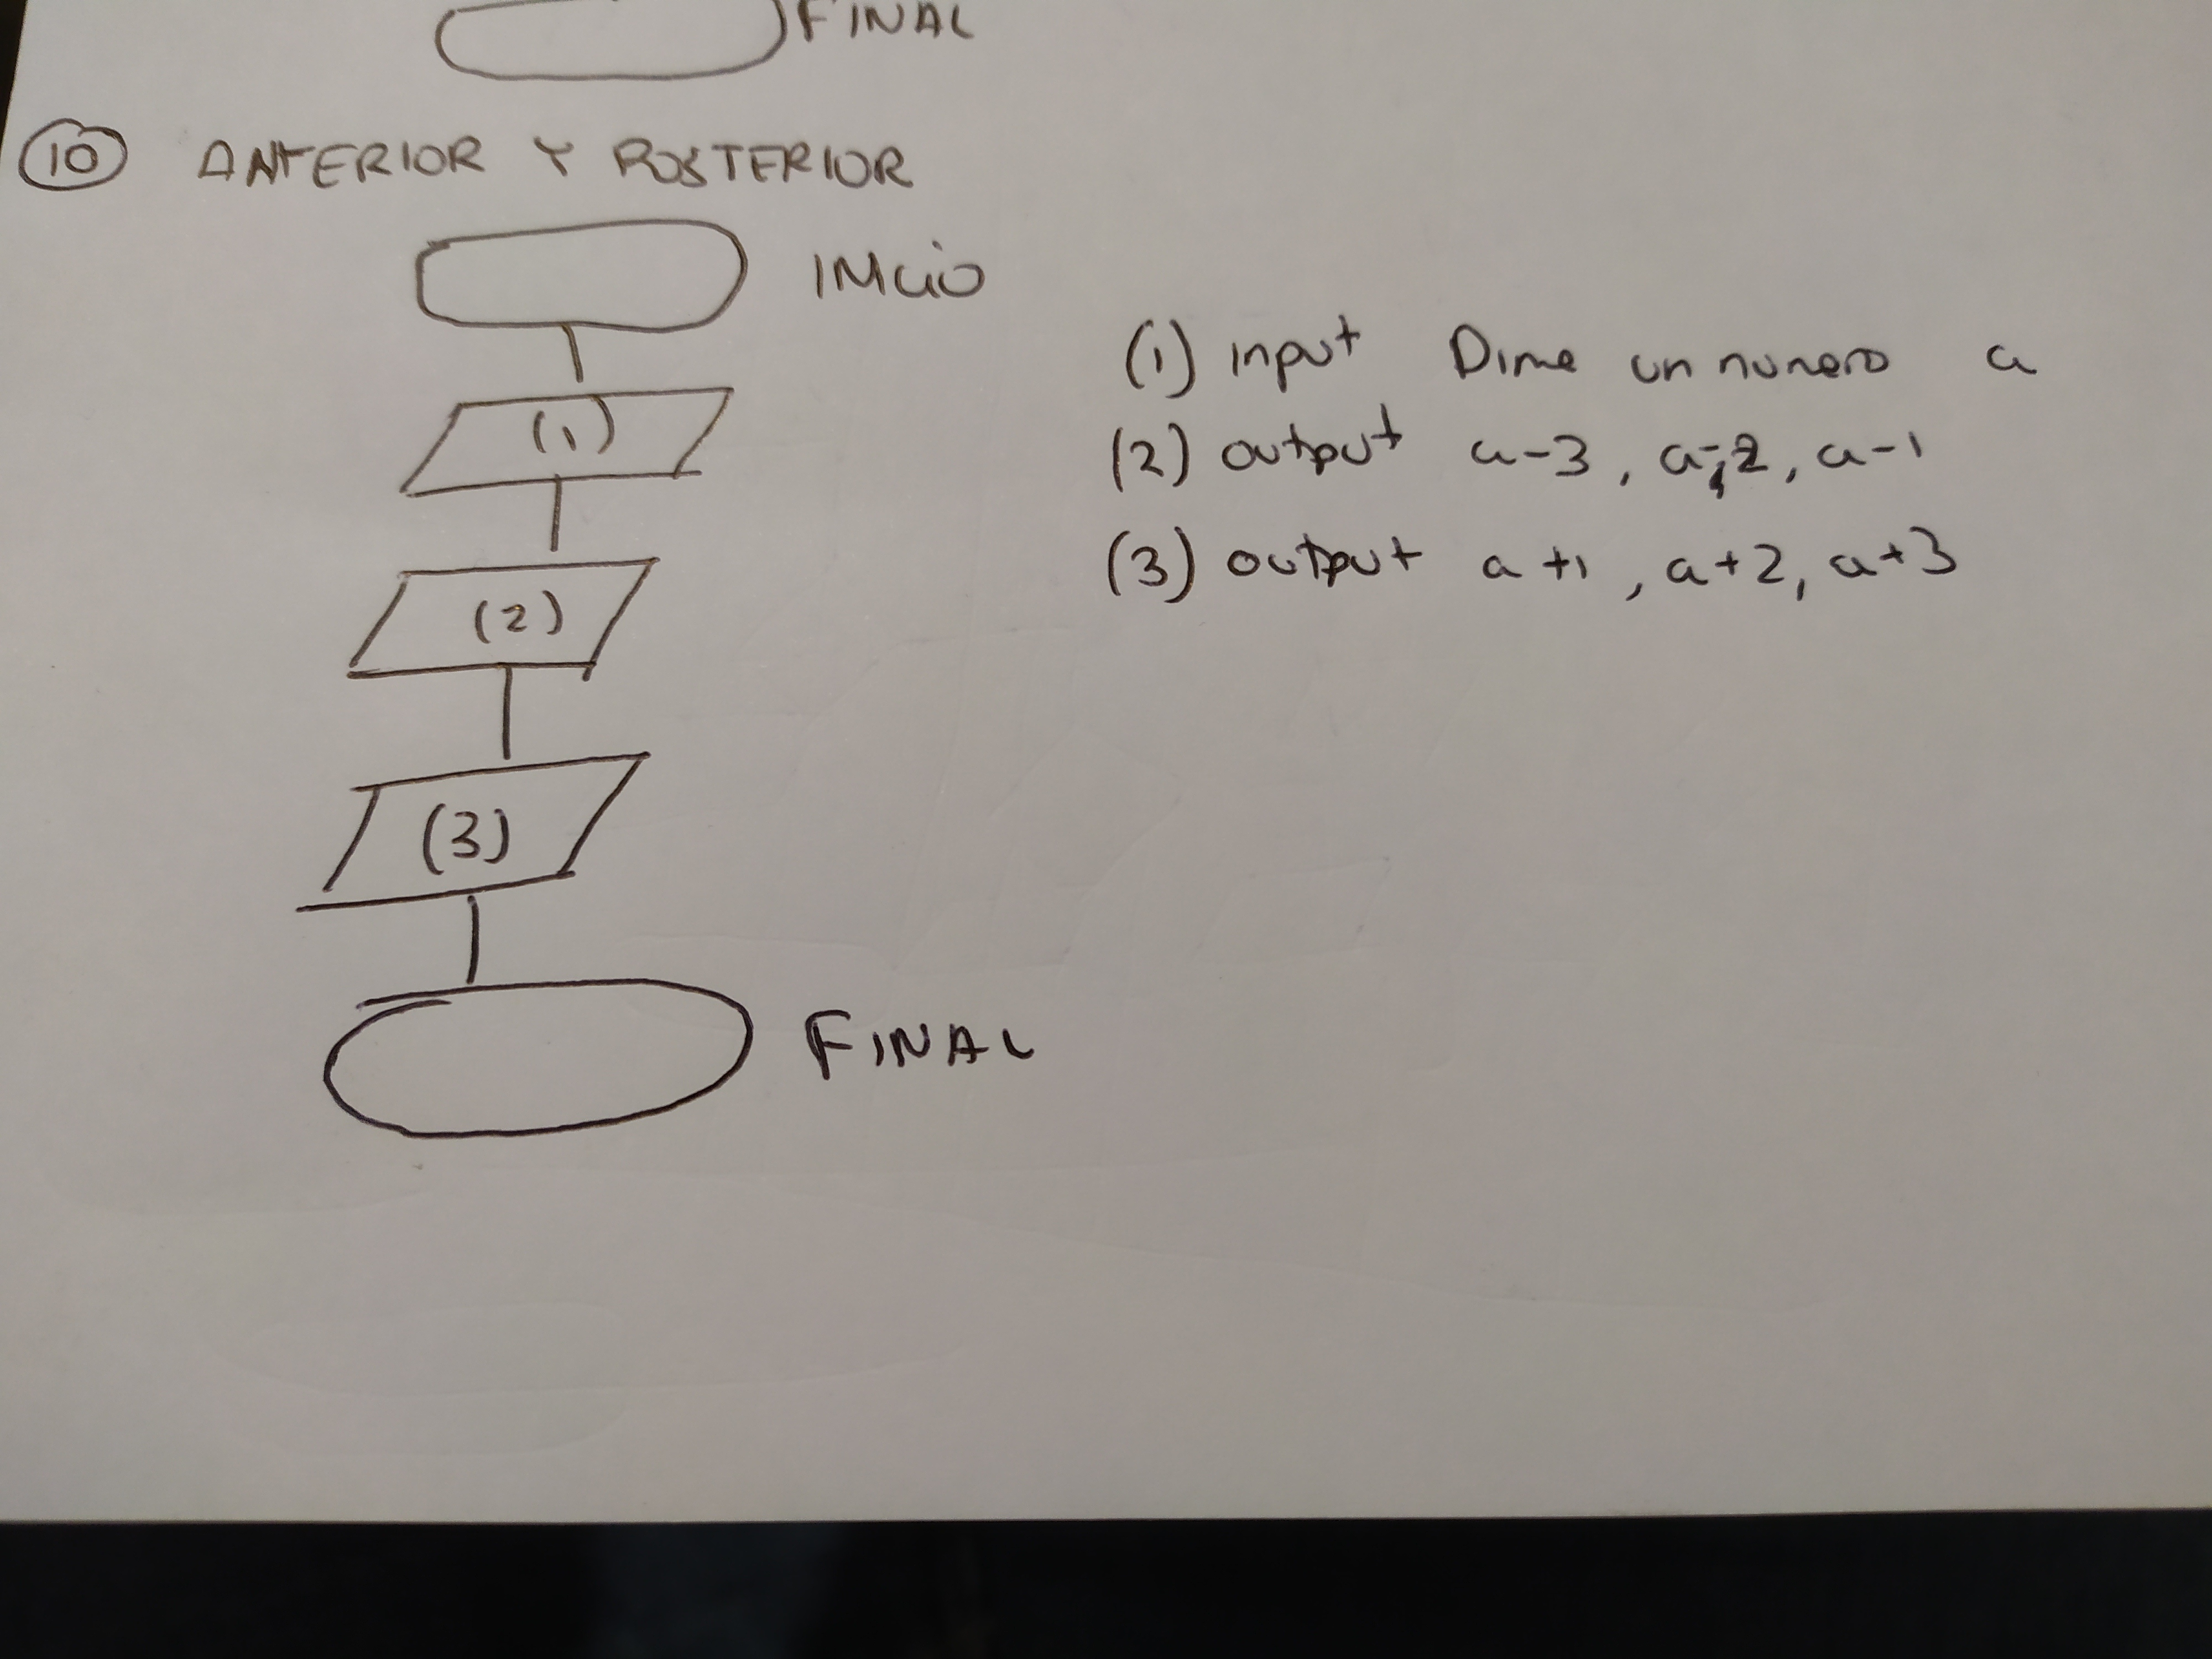 FINAL
10 ANTERIOR Y POSTERIOR
INICIO
(1)
(2)
(3)
FINAL
(1) input Dime un numero a
(2) output a-3, a-2, a-1
(3) output a+1, a+2, a+3